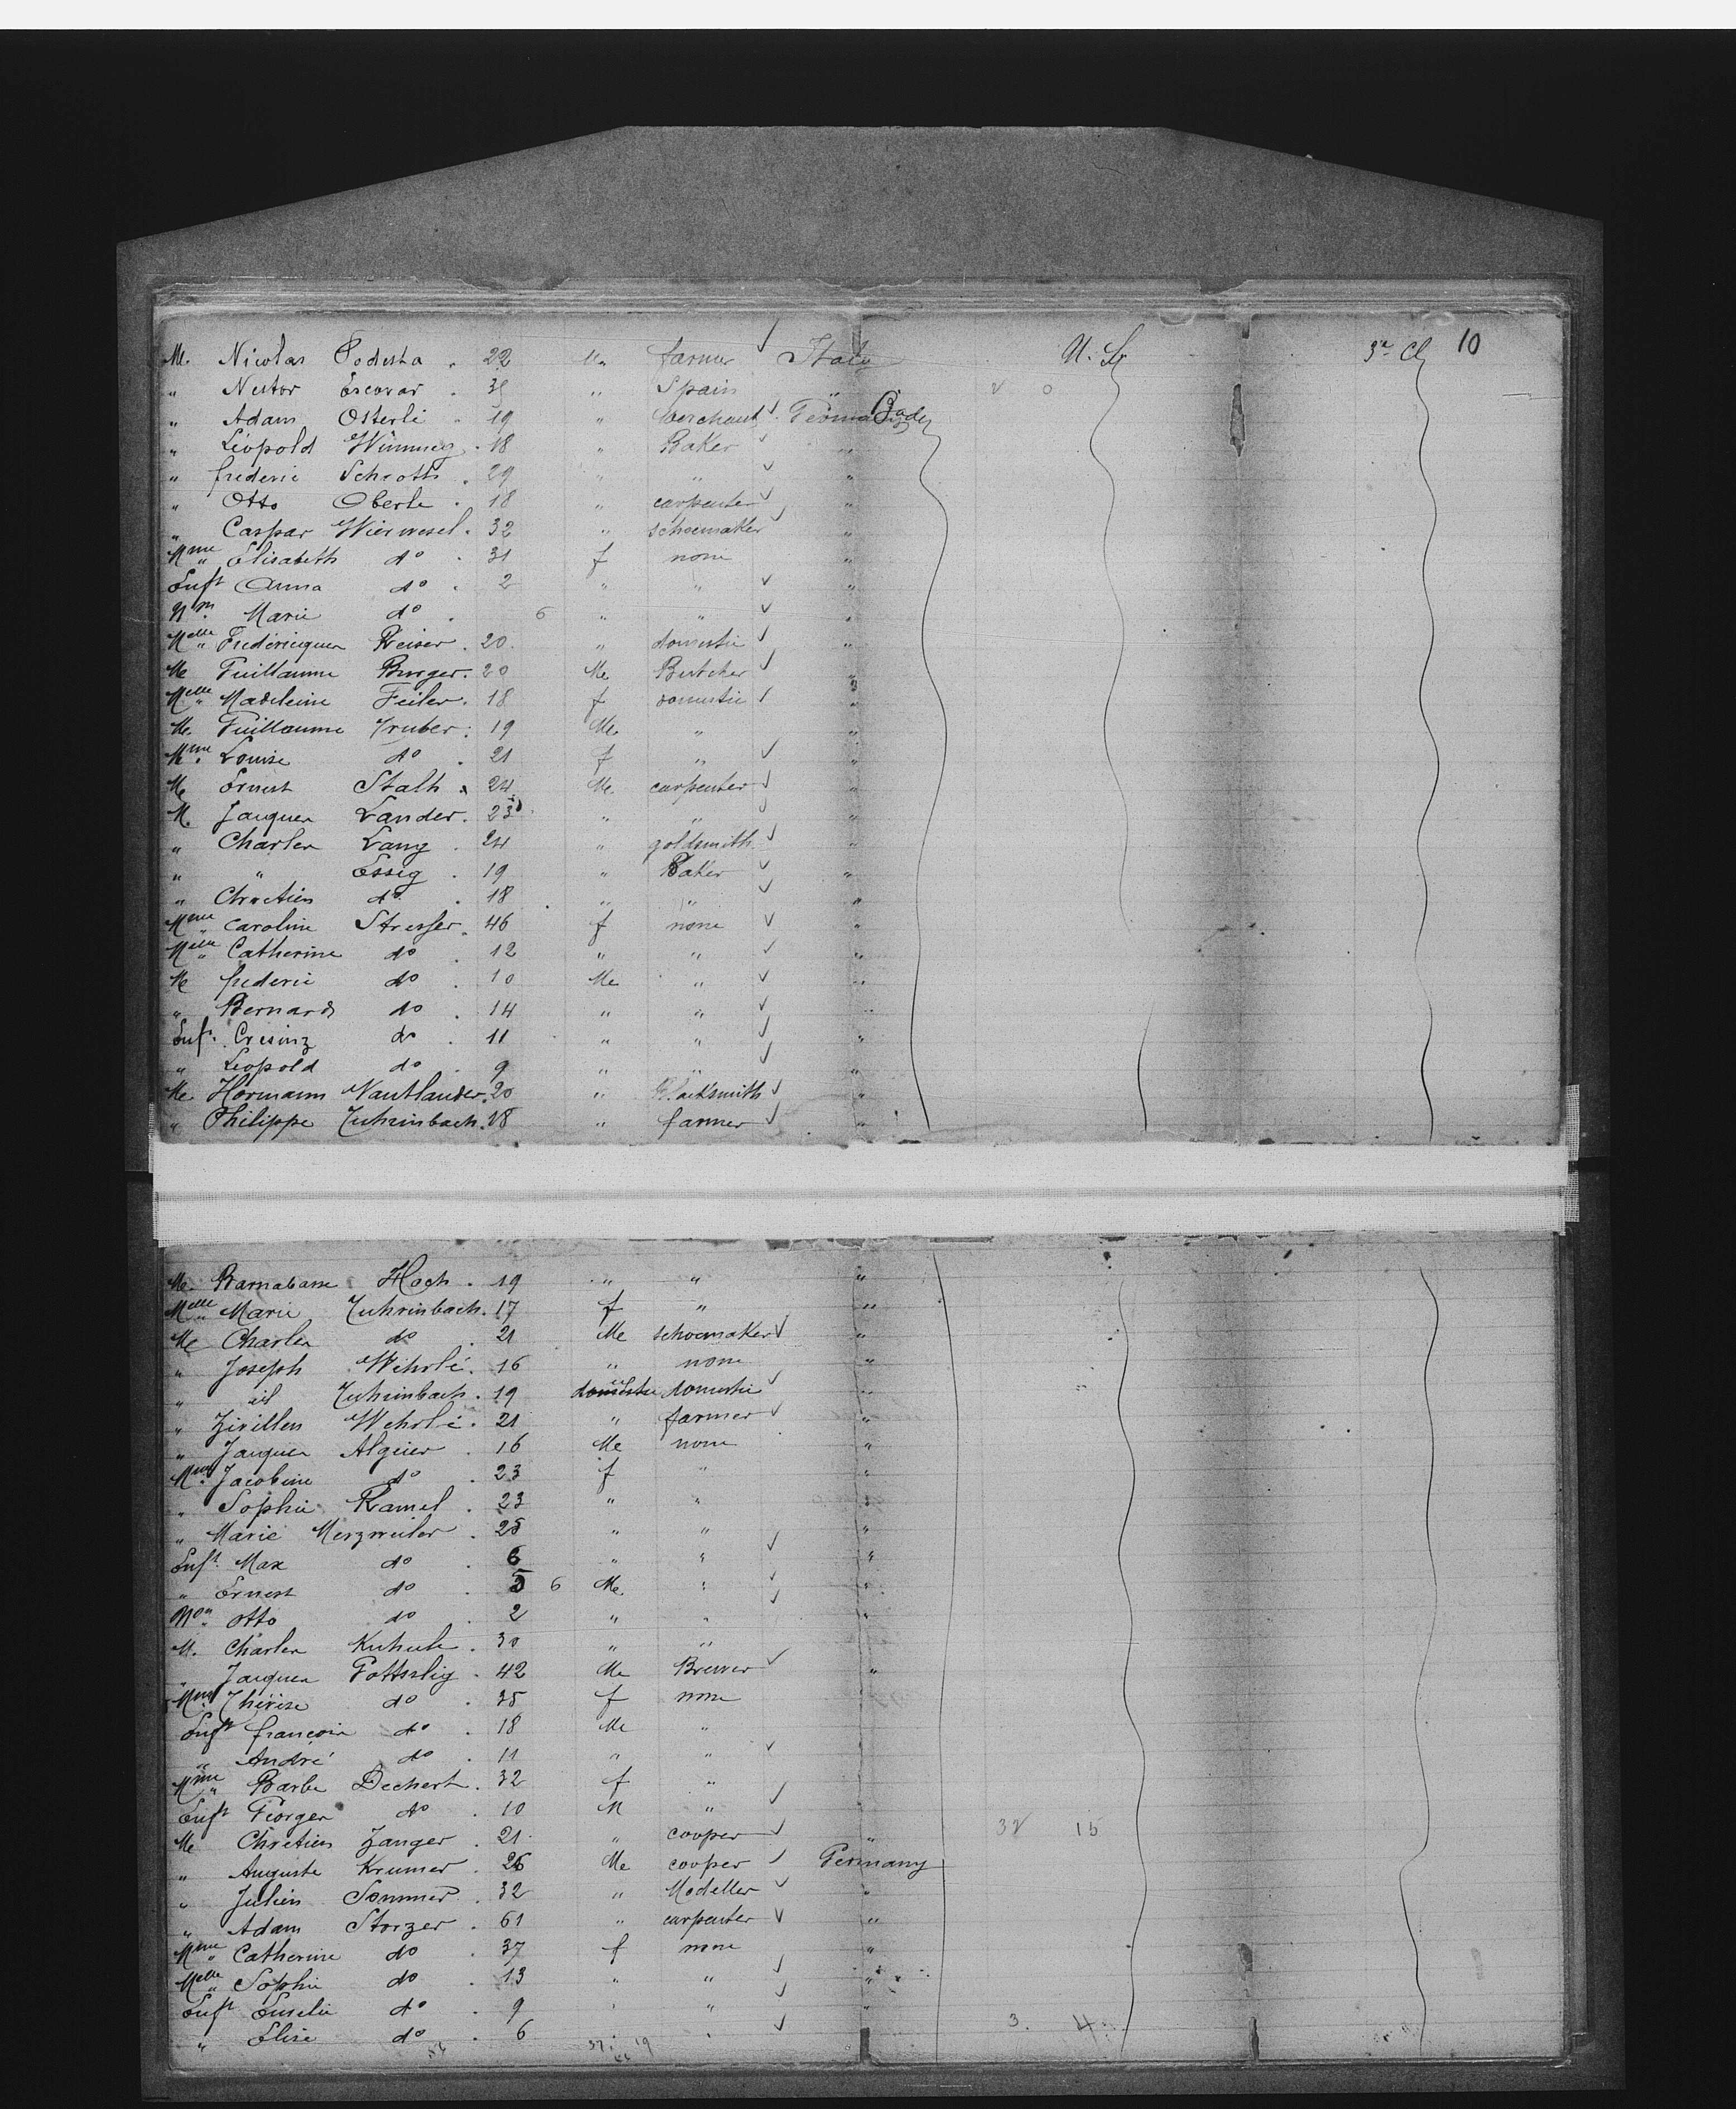 10
M. Nicolas Podesta . 22 Me farmer Italy U. S. 3e Cl
" Nestor Escovar . 35 " Spain "
" Adam Osterlé . 19 " merchant Germany Baden
" Léopold . 18 " Baker "
" frederic Schroth . 29 " " "
" Otto Oberle . 18 " carpenter "
" Caspar Wierwesel . 32 " schoemaker "
Mme " Elisabeth do . 31 f none "
Enft Anna do . 2 " " "
Nn Marie do . 6 " " "
Melle " Fredericque Reiser . 20 " domestic "
Me Guillaume Burger . 20 Me Butcher "
Melle " Madeleine Feiler . 18 f domestic "
Me. Guillaume Gruber . 19 Me. " "
Mme Louise do . 21 f " "
Me Ernest Stalh . 24 Me. carpenter "
M. Jacques Lander . 23 " " "
" Charles Lang . 24 " goldsmith "
" " Essig . 19 " Baker "
" Chretien do . 18 " " "
Mme " Caroline Stresser . 46 f none "
Melle " Catherine do . 12 " " "
Me frederic do . 10 Me " "
" Bernard do . 14 " " "
Enft. do . 11 " " "
" Léopold do . 9 " " "
Me. Hermann Nautlander . 20 " Blacksmith "
" Philippe Zuhrinbach . 28 " farmer "
Me. Barnabasse Hoch . 19 " " "
Melle " Marie Zuhrinbach . 17 f " "
Me Charles do . 21 Me schoemaker "
" Joseph Wehrlé . 16 " none "
" id Zuhrinbach . 19 domestic domestic "
" Wehrlé . 21 " farmer "
" Jacques Algeier . 16 Me none "
Mme Jacobine do . 23 f " "
" Sophie Ramel . 23 " " "
" Marie Merzweiler . 25 " " "
Enft. Max do . 6 " " "
" Ernest do . 5 6 Me. " "
Non Otto do . 2 " " "
M. Charles . 30 " "
" Jacques . 42 Me Brewer "
Mme Thérèse do . 35 f none
Enft françois do . 18 Me "
" André do . 11 " "
Mme " Barbe Dechert . 32 f "
Enft Georges do . 10 M "
Me Chretien Zanger . 21 " cooper " 32 15
" Auguste Krumer . 26 Me cooper Germany
" Julien Sommer . 32 " Modeller "
" Adam Storzer . 61 " carpenter "
Mme " Catherine do . 37 f none "
Melle " Sophie do . 13 " " "
Enft do . 9 " " "
" Elise do . 6 " 3. 4